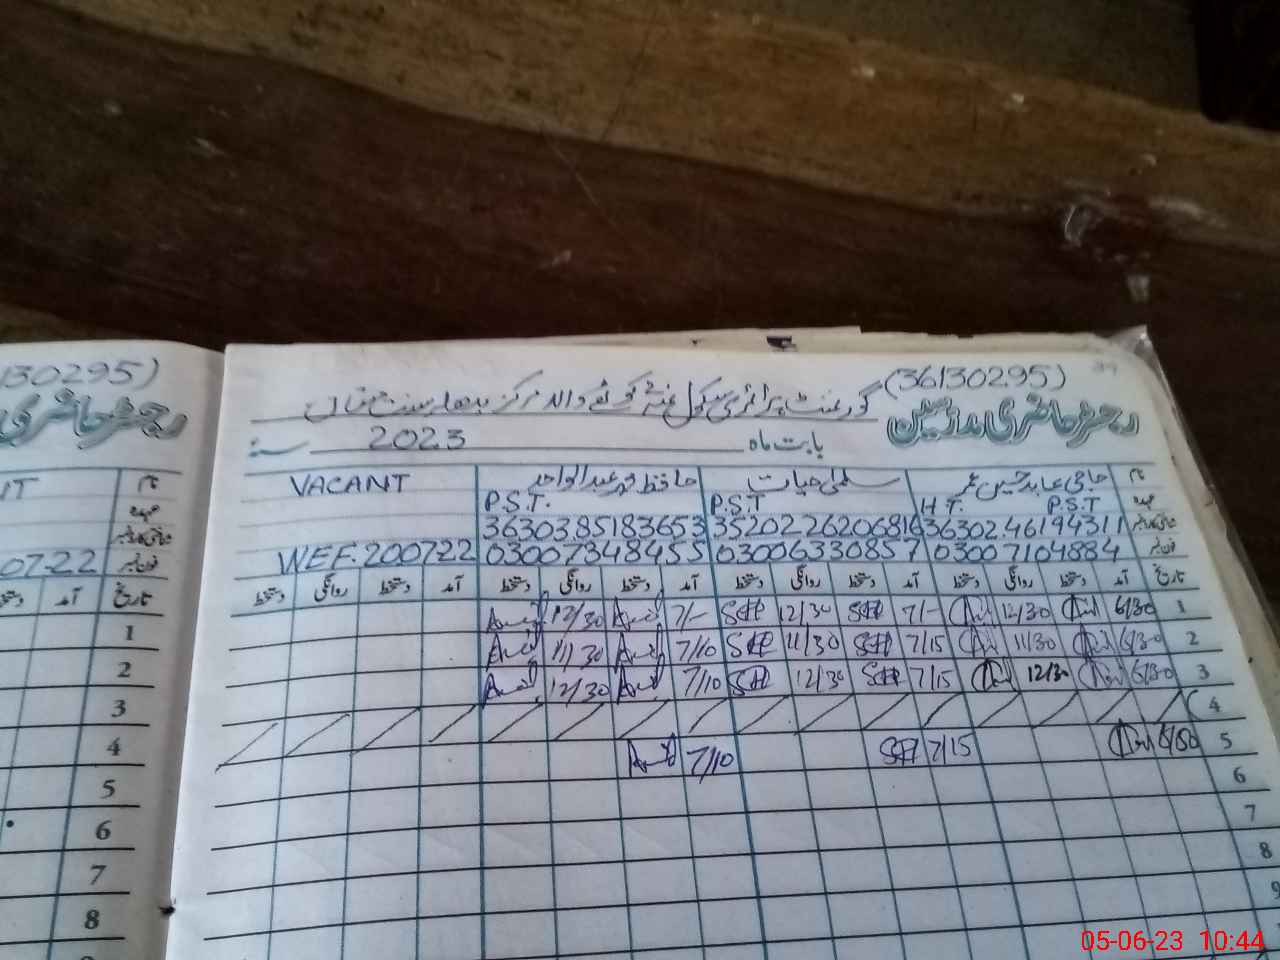 (36130295)
رجسٹر حاضری مدرسین
گورنمنٹ پرائمری سکول والہ مرکز بدھلہ سنت ملتان
بابت ماہ 2023 سنہ
نام حاجی عابد حسین سلمیٰ حیات حافظ محمد عبدالواحد VACANT
عہدہ H.T. P.S.T P.S.T P.S.T.
شناختی کارڈ نمبر 3630246194311 3520226206816 3630385183653
فون نمبر 03007104884 03006330857 03007348455 WEF. 200722
تاریخ آمد دستخط روانگی دستخط آمد دستخط روانگی دستخط آمد دستخط روانگی دستخط آمد دستخط روانگی دستخط
1 6/30 12/30 7/- 12/30 7/- 12/30
2 6/30 11/30 7/15 11/30 7/10 11/30
3 6/30 12/30 7/15 12/30 7/10 12/30
4
5 6/30 7/15 7/10
6
7
8
9
130295)
رجسٹر حاضری
نام
عہدہ
شناختی کارڈ نمبر
فون نمبر 07-22
تاریخ آمد
1
2
3
4
5
6
7
8
05-06-23 10:44